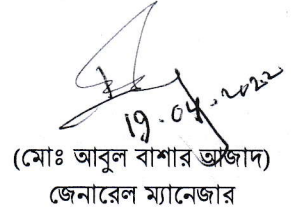 19.04.2022
(মোঃ আবুল বাশার আজাদ)
জেনারেল ম্যানেজার